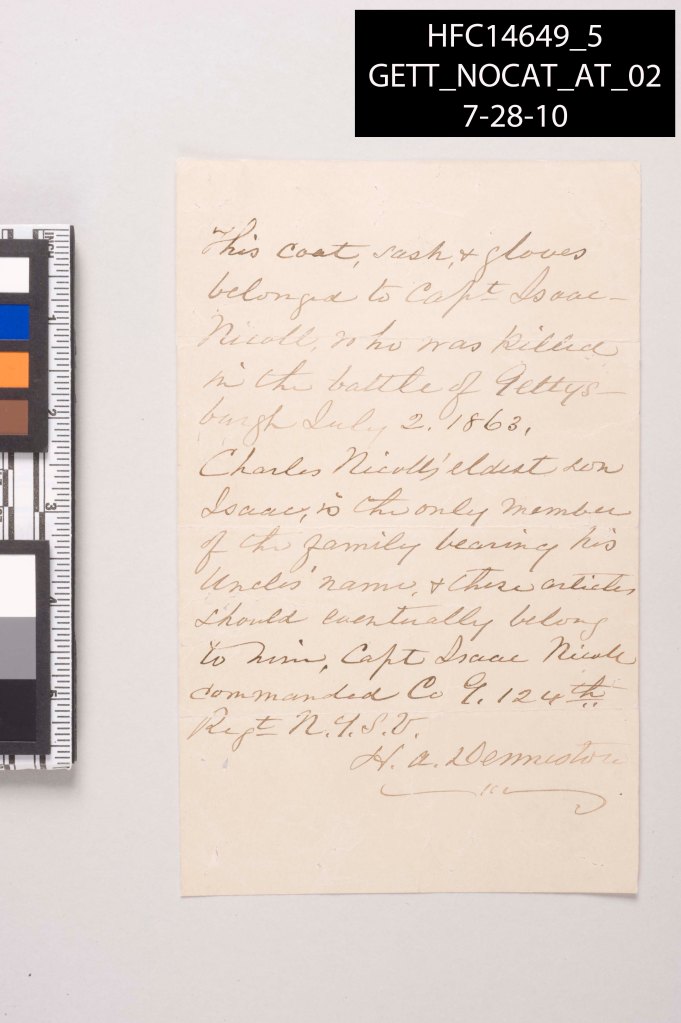 HFC14649_5
GETT_NOCAT_AT_02
7-28-10
This coat, sash, & gloves
belonged to Capt Isaac
Nicoll, who was killed
in the battle of Gettys-
burgh July 2. 1863.
Charles Nicolls' eldest son
Isaac, is the only member
of the family bearing his
Uncles' name, & these articles
should eventually belong
to him, Capt Isaac Nicoll
commanded Co G. 124th
Regt N.Y.S.V.
H. A. Denniston
INCH
1
2
3
4
5